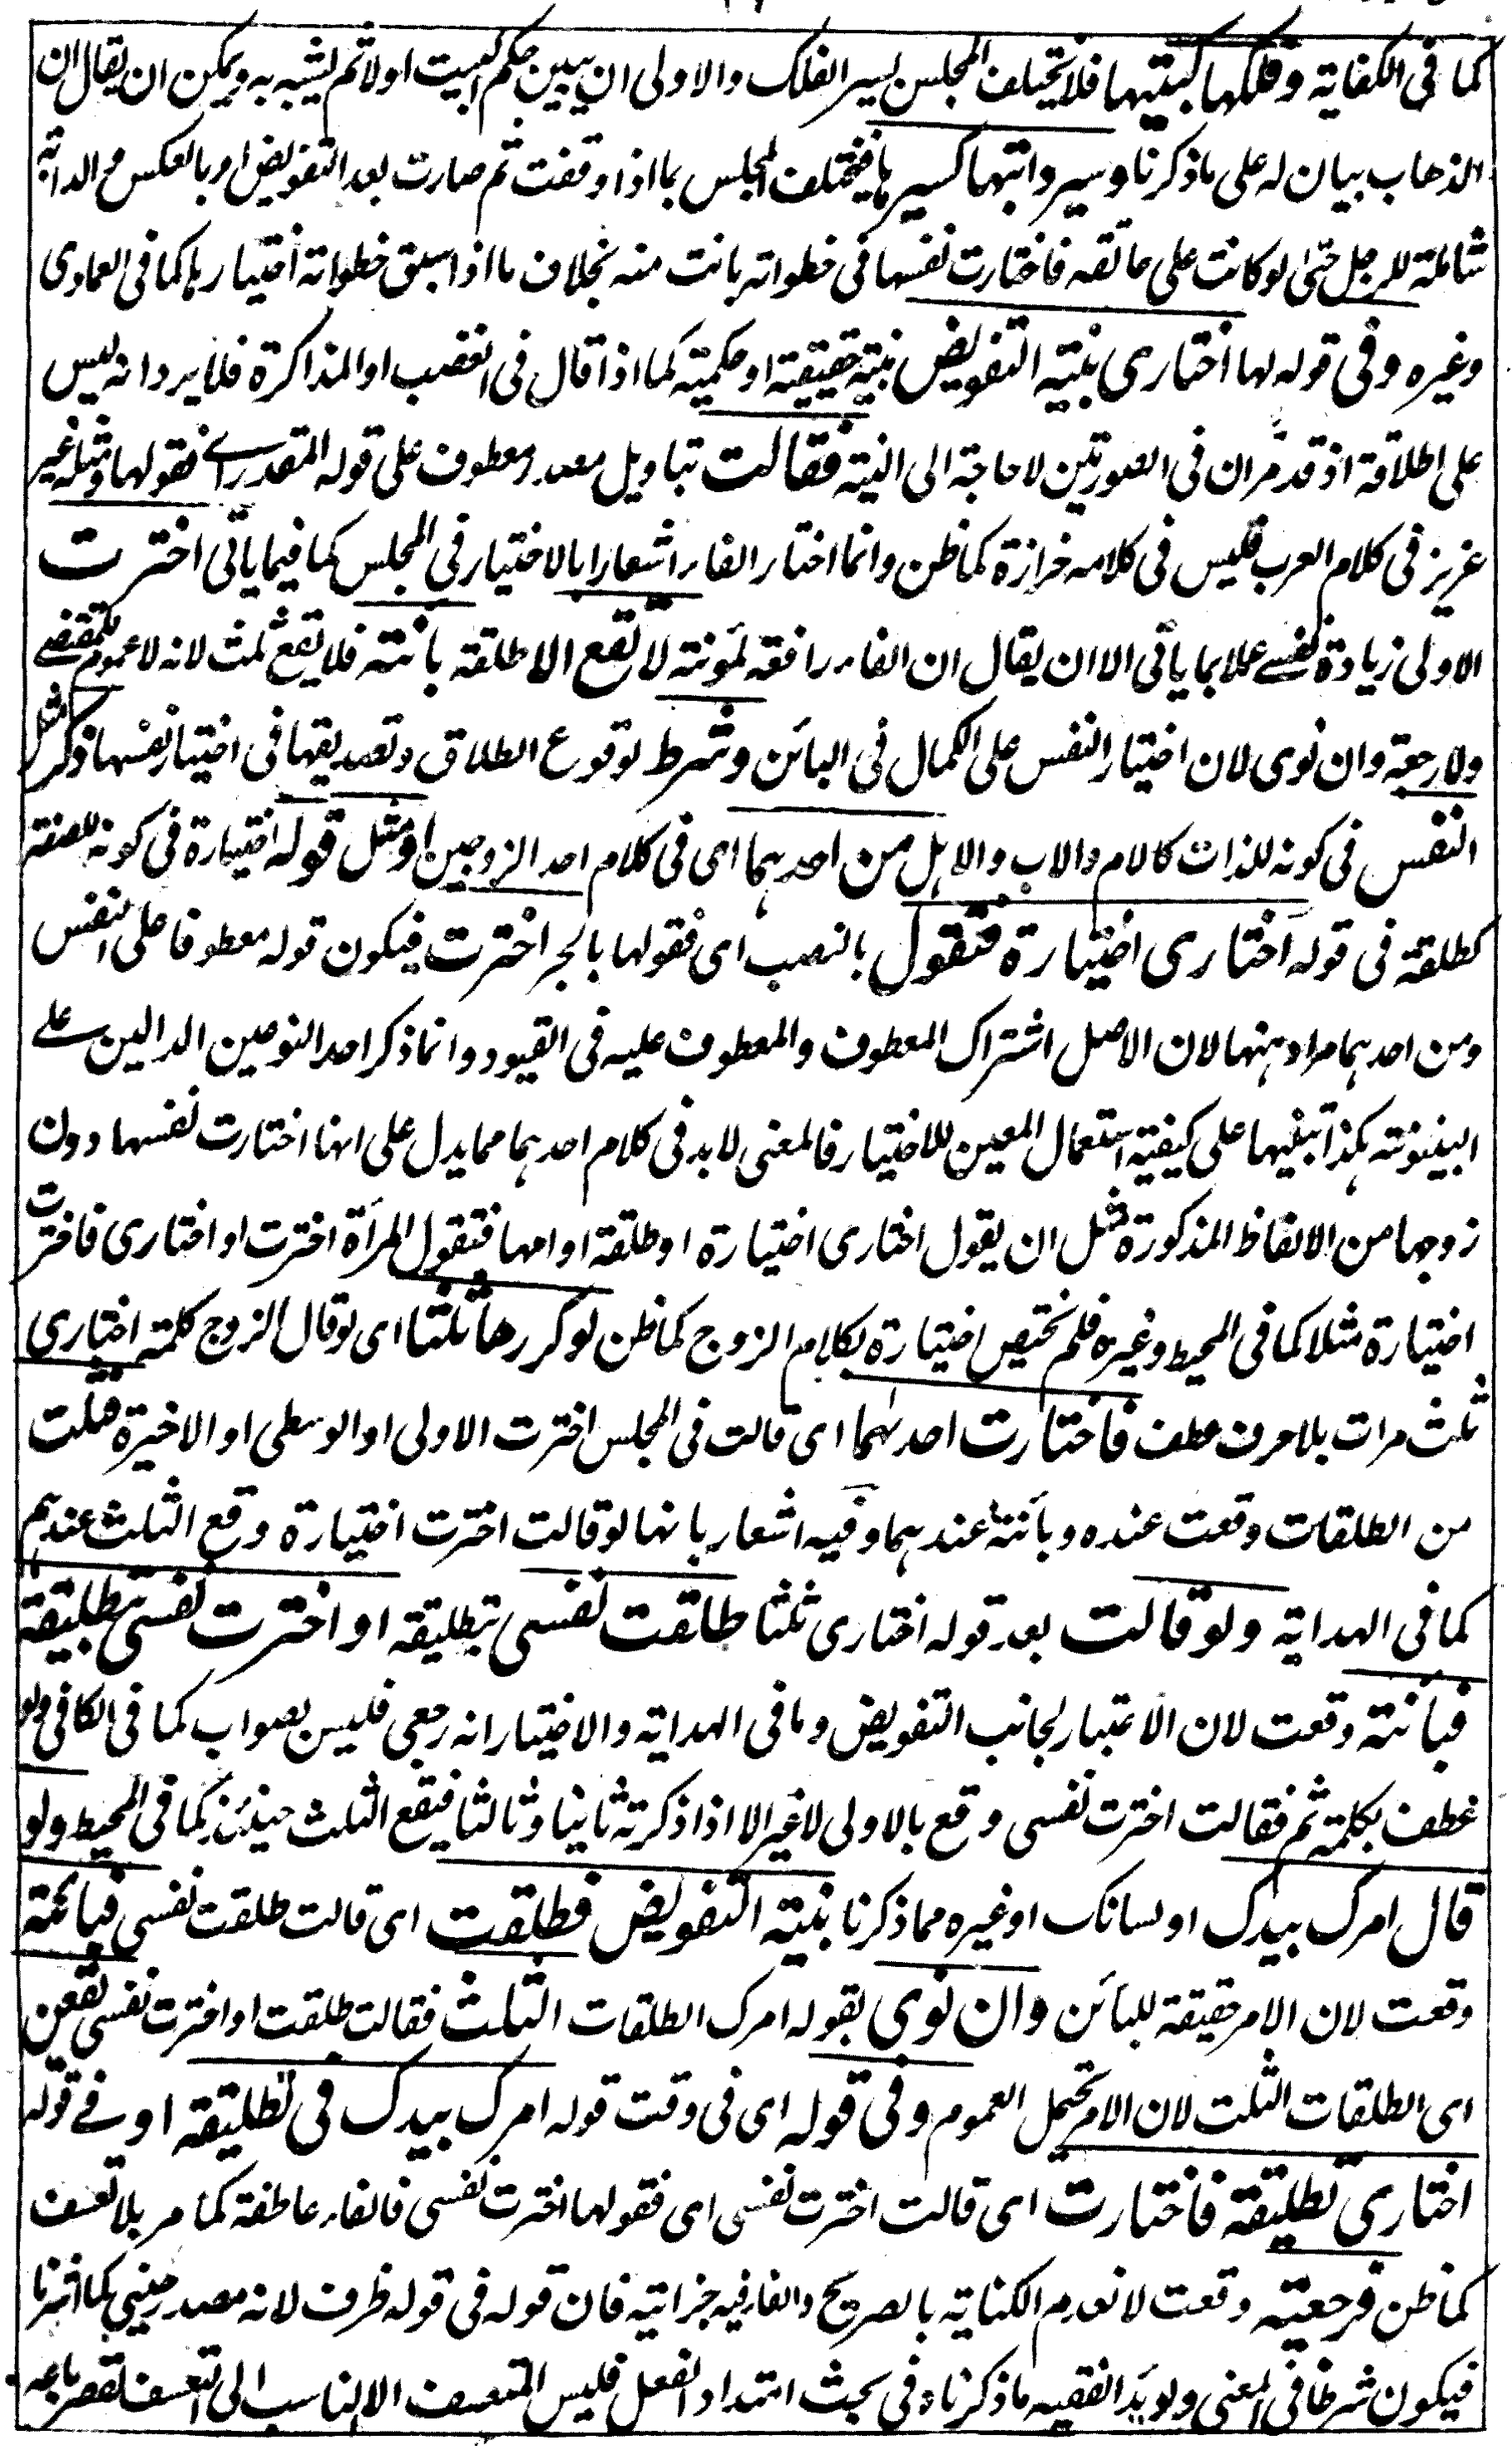 كما في الكفاية وفلكها كبيتها فلا يختلف المجلس بسير الفلك والاولى ان يبين حكم البيت اولا ثم يشبه به ويمكن ان يقال ان
الذهاب بيان له على ما ذكرنا وسير دابتها كسيرها فيختلف المجلس بما اذا وقفت ثم صارت بعد التفويض او بالعكس والدابة
شاملة للرجل حتى لو كانت على عاتقه فاختارت نفسها في خطواته بانت منه بخلاف ما اذا سبق خطواته اختيارها كما في العمادي
وغيره وفي قوله لها اختاري بنية التفويض نية حقيقية او حكمية كما اذا قال في الغضب او المذاكرة فلا يرد انه ليس
على اطلاقه اذ قد مر ان في الصورتين لا حاجة الى النية فقالت بتاويل مصدر معطوف على قوله المقدر اي فقولها ومثله غير
عزيز في كلام العرب فليس في كلامه خرازة كما ظن وانما اختار الفاء اشعارا بالاختيار في المجلس كما فيما ياتي اخترت
الاولى زيادة نفسي عملا بما ياتي الا ان يقال ان الفاء رافقة لمؤنته لا تقع الا طلقة بائنة فلا يقع ثلث لانه لا عموم للمقتضى
ولا رجعة وان نوى لان اختيار النفس على الكمال في البائن وشرط لوقوع الطلاق وتصديقها في اختيار نفسها ذكر مثل
النفس في كونه للذات كالام والاب والاهل من احدهما اى في كلام احد الزوجين او مثل قوله اختيارة في كونه للصفة
كطلقة في قوله اختاري اختيارة فتقول بالنصب اى فقولها بالجر اخترت فيكون قوله معطوفا على النفس
ومن احدهما مراد ههنا لان الاصل اشتراك المعطوف والمعطوف عليه في القيود وانما ذكر احد النوعين الدالين على
البينونة هكذا تنبيها على كيفية استعمال المعين للاختيار فالمعنى لا بد في كلام احدهما مما يدل على انها اختارت نفسها دون
زوجها من الالفاظ المذكورة مثل ان يقول اختاري اختيارة او طلقة او امها فتقول المرأة اخترت او اختاري فاخترت
اختيارة مثلا كما في المحيط وغيره فلم تختص اختيارة بكلام الزوج كما ظن لو كررها ثلثا اى لو قال الزوج كلمة اختاري
ثلث مرات بلا حرف عطف فاختارت احدىهما اى قالت في المجلس اخترت الاولى او الوسطى او الاخيرة فثلث
من الطلقات وقعت عنده وبائنة عندهما وفيه اشعار بانها لو قالت اخترت اختيارة وقع الثلث عندهم
كما في الهداية ولو قالت بعد قوله اختاري ثلثا طلقت نفسي بتطليقة او اخترت نفسي بتطليقة
فبائنة وقعت لان الاعتبار لجانب التفويض وما في الهداية والاختيار انه رجعي فليس بصواب كما في الكافي ولو
عطف بكلمة ثم فقالت اخترت نفسي وقع بالاولى لا غير الا اذا ذكرته ثانيا وثالثا فيقع الثلث حينئذ كما في المحيط ولو
قال امرك بيدك او لسانك او غيره مما ذكرنا بنية التفويض فطلقت اى قالت طلقت نفسي فبائنة
وقعت لان الامر حقيقة للبائن وان نوى بقوله امرك الطلقات الثلث فقالت طلقت او اخترت نفسي تقعن
اى الطلقات الثلث لان الامر يحتمل العموم وفي قوله اى في وقت قوله امرك بيدك في تطليقة او في قوله
اختاري تطليقة فاختارت اى قالت اخترت نفسي اى فقولها اخترت نفسي فالفاء عاطفة كما مر بلا تعسف
كما ظن فرجعية وقعت لانعدام الكناية بالصريح والفا فيه جزائية فان قوله في قوله ظرف لانه مصدر حيني كما اشرنا
فيكون شرطا في المعنى ويؤيد الفقيه ما ذكرناه في بحث امتداد الفعل فليس المتعسف الا الناسب الى التعسف لقصر باعه